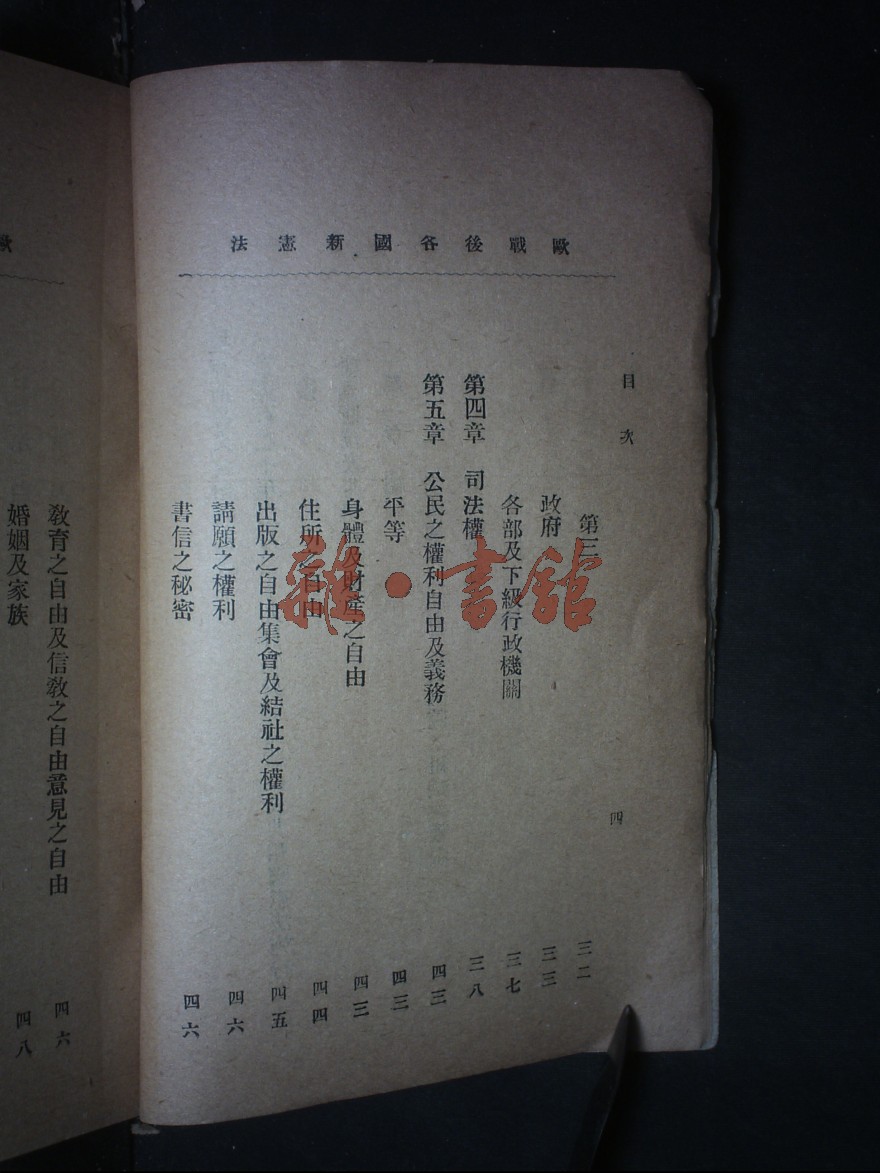 歐戰後各國新憲法
目次
四
第三 三二
政府 三三
各部及下級行政機關 三七
第四章 司法權 三八
第五章 公民之權利自由及義務 四三
平等 四三
身體及財產之自由 四三
住所之自由 四四
出版之自由集會及結社之權利 四五
請願之權利 四六
書信之秘密 四六
歐
教育之自由及信教之自由意見之自由 四六
婚姻及家族 四八
雜·書館